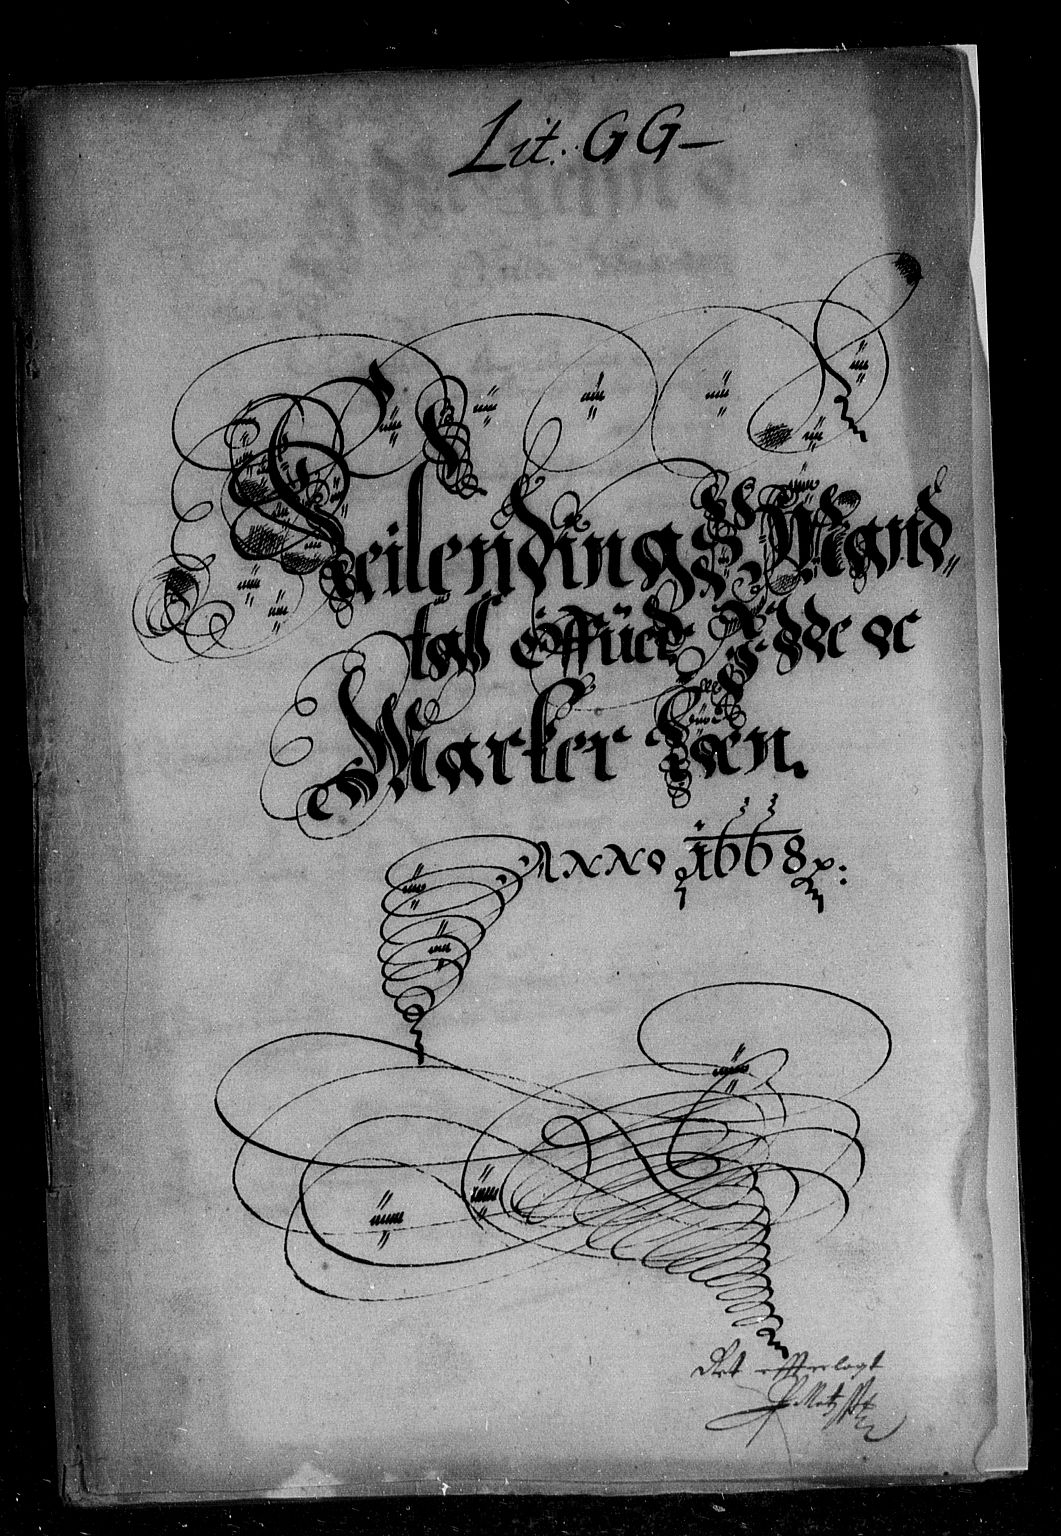 Lit: GG
Seilendings Mand
tall öffüer Jdde oc
Marker Læn.
ANNO 1668